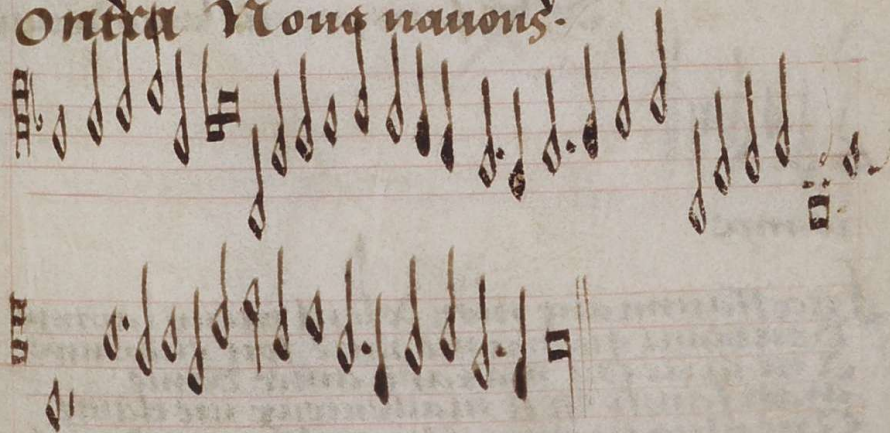 Ontra Nous navons.